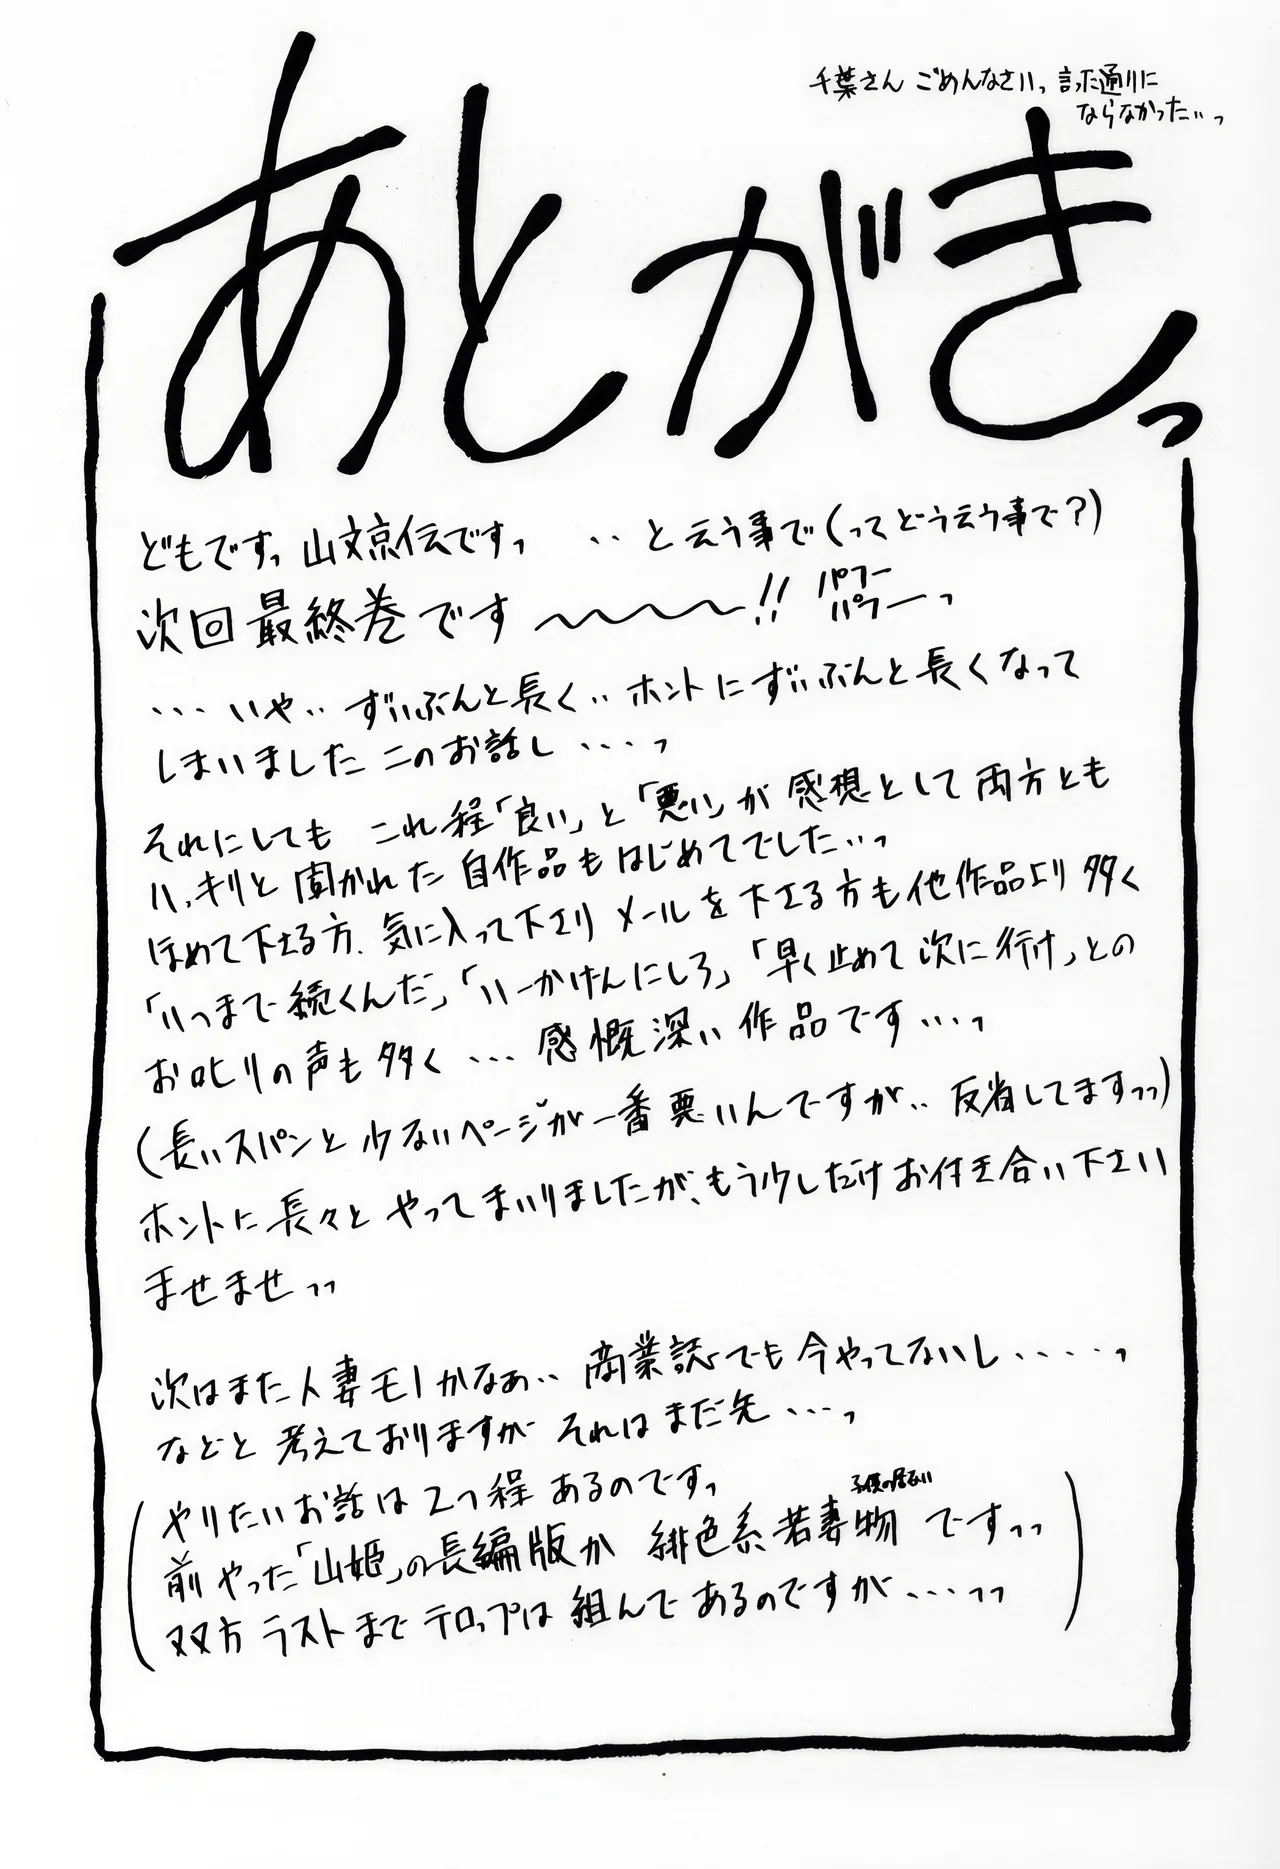 千葉さん ごめんなさいっ 言った通りに
ならなかった‥っ
あとがきっ
どもですっ 山文京伝ですっ ‥と云う事で(ってどう云う事で?)
次回最終巻です〜〜〜!! パフー
パフーっ
…いや‥ずいぶんと長く‥ホントにずいぶんと長くなって
しまいました このお話し…っ
それにしても これ程「良い」と「悪い」が感想として両方とも
ハッキリと聞かれた自作品もはじめてでした…っ
ほめて下さる方、気に入って下さり メールを下さる方も他作品より多く
「いつまで続くんだ」「いーかげんにしろ」「早く止めて次に行け」との
お叱りの声も多く…感慨深い作品です…っ
(長いスパンと少ないページが一番悪いんですが‥反省してますっっ)
ホントに長々とやってまいりましたが、もう少しだけお付き合い下さい
ませませっっ
次はまた人妻モノかなぁ‥商業誌でも今やってないし‥‥っ
などと考えておりますが それはまだ先…っ
(やりたいお話は2つ程あるのですっ
子供の居ない
前やった「山姫」の長編版か 緋色系若妻物 ですっっ
双方ラストまでテロップは組んであるのですが…っっ)